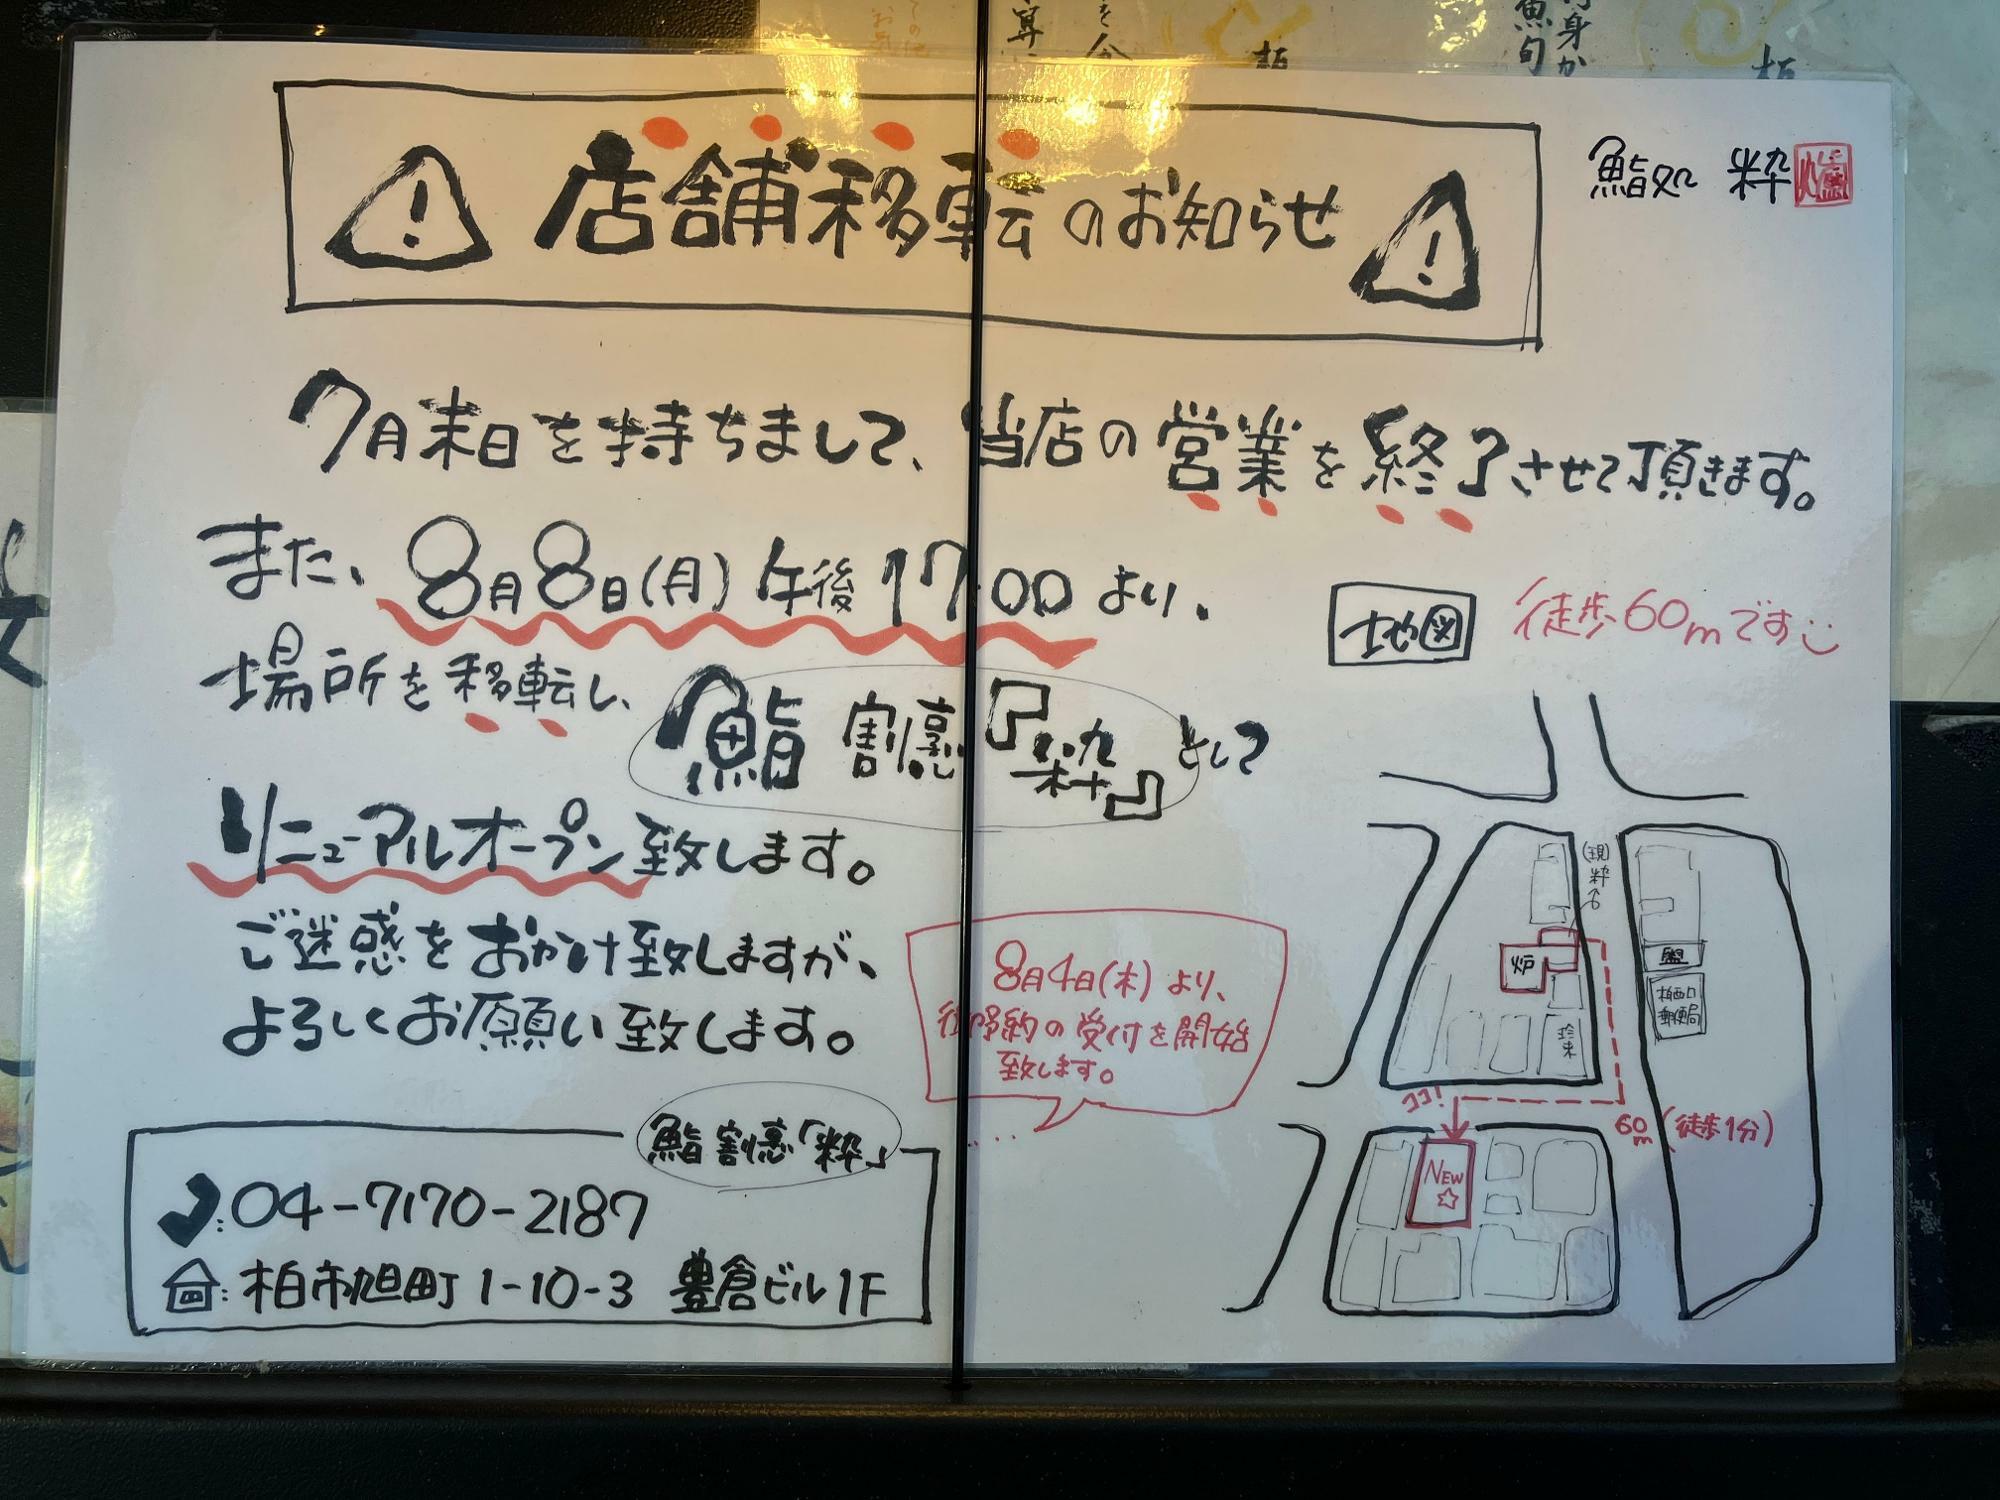 店舗移転のお知らせ
鮨処 粋 爐
7月末日を持ちまして、当店の営業を終了させて頂きます。
また、8月8日(月)午後17:00より、
場所を移転し、鮨 割烹『粋』として
リニューアルオープン致します。
ご迷惑をおかけ致しますが、
よろしくお願い致します。
8月4日(木)より、
御予約の受付を開始
致します。
鮨 割烹「粋」
:04-7170-2187
:柏市旭町1-10-3 豊倉ビル1F
地図 徒歩60mです
(現)粋
炉
柏西口
郵便局
珍来
ココ!
60m(徒歩1分)
NEW